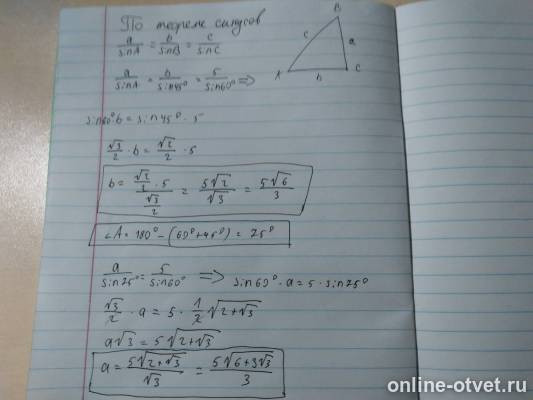 По теореме синусов
a/sinA = b/sinB = c/sinC
B
c
a
A
b
C
a/sinA = b/sin45° = 5/sin60° =>
sin60°·b = sin45°·5
√3/2 · b = √2/2 · 5
b = (√2/2 · 5)/(√3/2) = 5√2/√3 = 5√6/3
∠A = 180° - (60° + 45°) = 75°
a/sin75° = 5/sin60° => sin60°·a = 5·sin75°
√3/2 · a = 5 · 1/2 √(2+√3)
a√3 = 5√(2+√3)
a = 5√(2+√3)/√3 = 5√(6+3√3)/3
online-otvet.ru